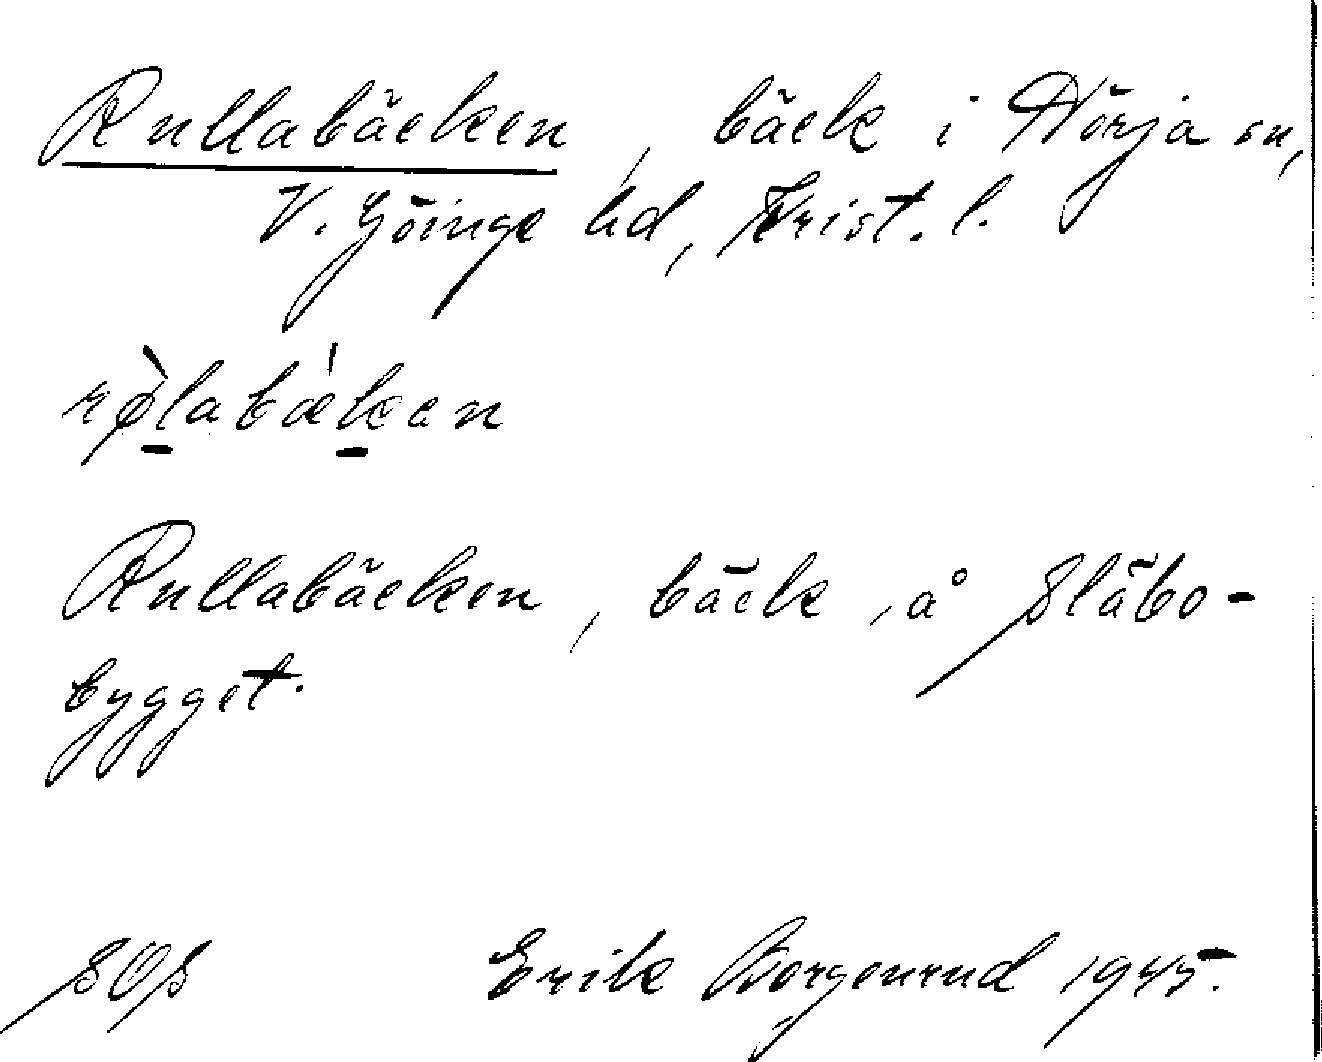 Rullabäcken, bäck i Nörja sn,
V. Göinge hd, Krist. l.
rø̀labǽken
Rullabäcken, bäck, å Släbo-
bygget.
SOS Erik Borgenrud 1945.